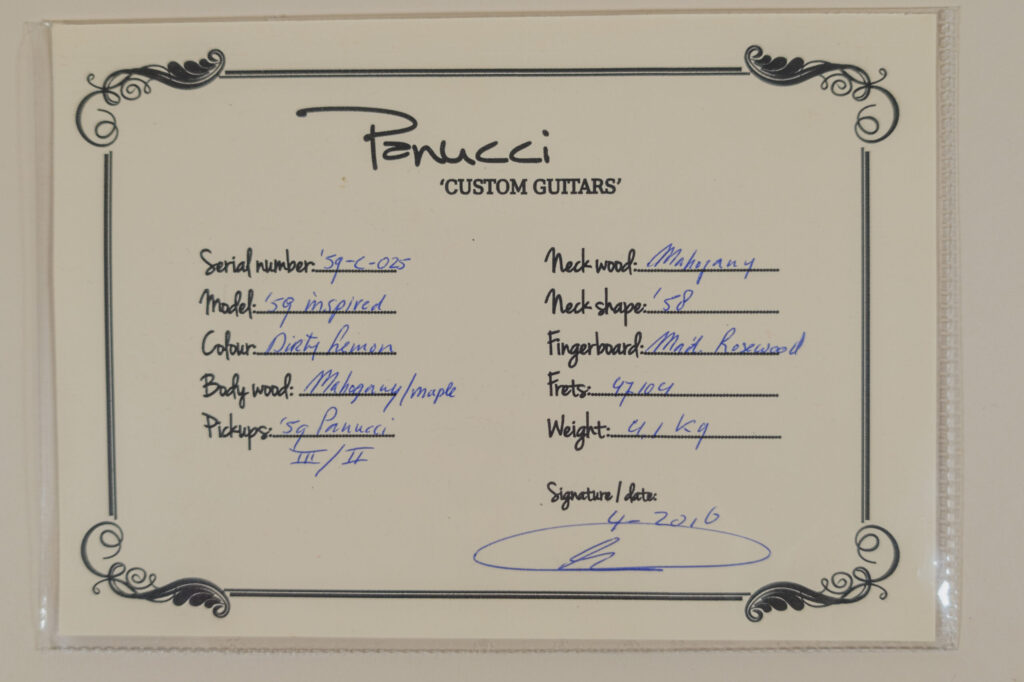 Panucci
'CUSTOM GUITARS'
Serial number: '59-C-025
Model: '59 inspired
Colour: Dirty Lemon
Body wood: Mahogany/maple
Pickups: '59 Panucci
III/II
Neck wood: Mahogany
Neck shape: '58
Fingerboard: Mad. Rosewood
Frets: 47104
Weight: 4,1 Kg
Signature / date:
4-2016